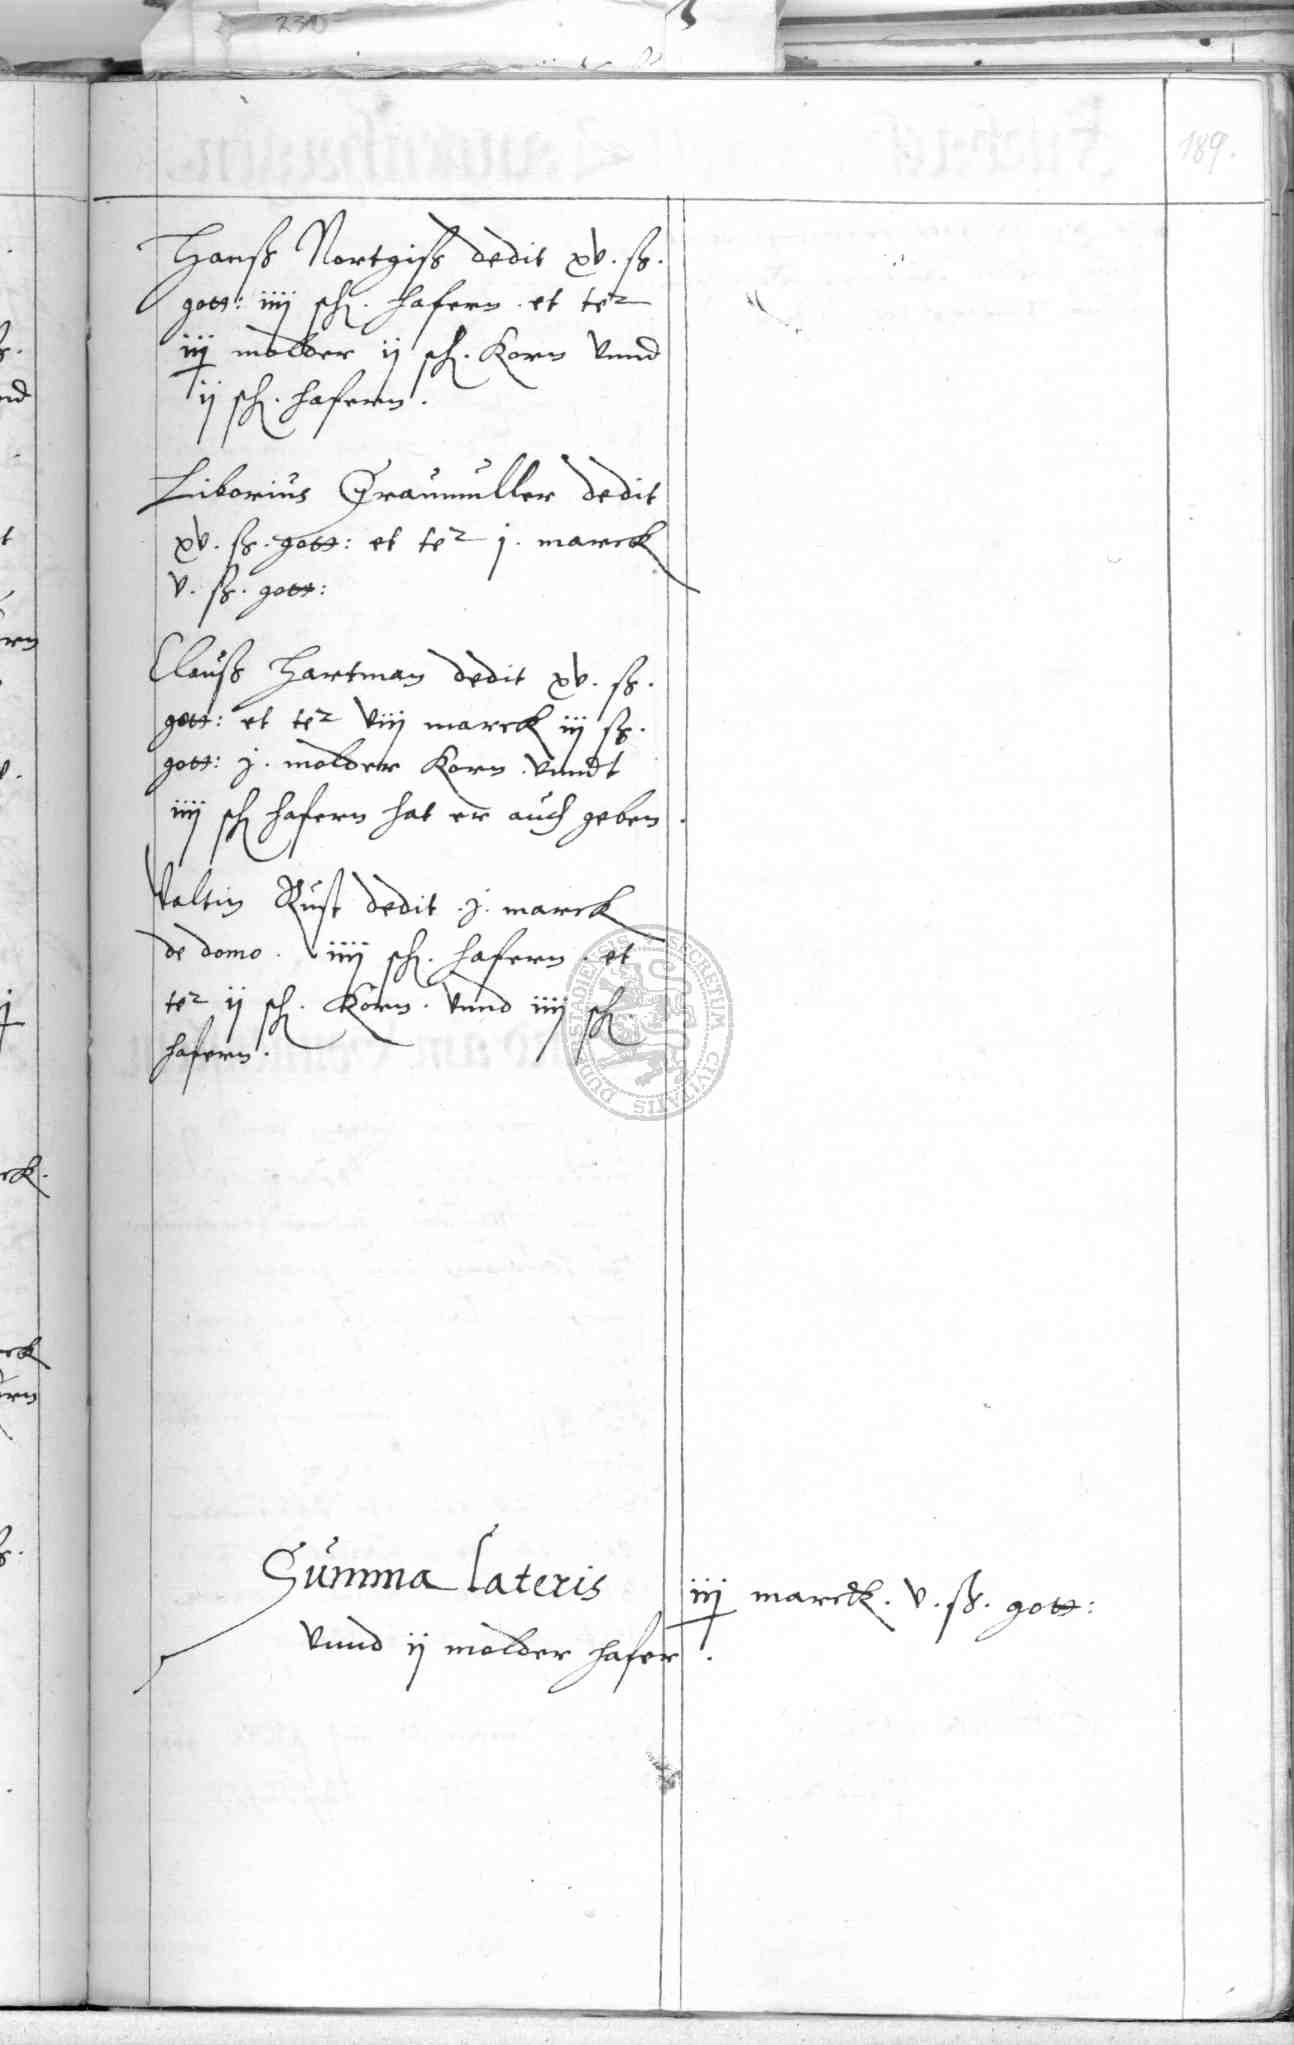 189.
Hanß Nortgiß dedit xv. ß.
gott: iiij sch. hafern. et te2
iij molder ij sch. Korn vnnd
ij sch. hafern.
Liborius Graumüller dedit
xv. ß. gott: et te2 j. marck
v. ß. gott:
Clauß Hartman dedit xv. ß.
gott: et te2 viij marck iij ß.
gott: j. molder Korn. vnndt
iiij sch hafern hat er auch geben.
Valtin Rust dedit. j. marck
de domo. iiij sch. hafern. et
te2 ij sch. Korn. vnnd iiij sch.
hafern.
Summa lateris iij marck. v. ß. gott:
vnnd ij molder hafer.
SECRETUM CIVITATIS DUDERSTADIENSIS